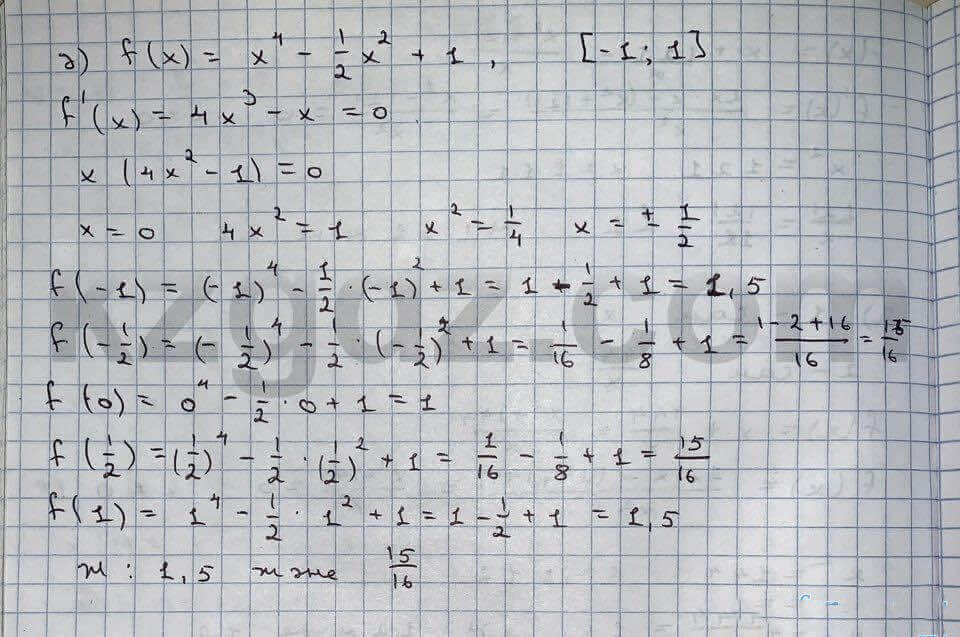 ә) f(x) = x⁴ - 1/2 x² + 1, [-1; 1]
f'(x) = 4x³ - x = 0
x (4x² - 1) = 0
x = 0 4x² = 1 x² = 1/4 x = ± 1/2
f(-1) = (-1)⁴ - 1/2 · (-1)² + 1 = 1 - 1/2 + 1 = 1,5
f(-1/2) = (-1/2)⁴ - 1/2 · (-1/2)² + 1 = 1/16 - 1/8 + 1 = (1 - 2 + 16)/16 = 15/16
f(0) = 0⁴ - 1/2 · 0 + 1 = 1
f(1/2) = (1/2)⁴ - 1/2 · (1/2)² + 1 = 1/16 - 1/8 + 1 = 15/16
f(1) = 1⁴ - 1/2 · 1² + 1 = 1 - 1/2 + 1 = 1,5
ж : 1,5 және 15/16